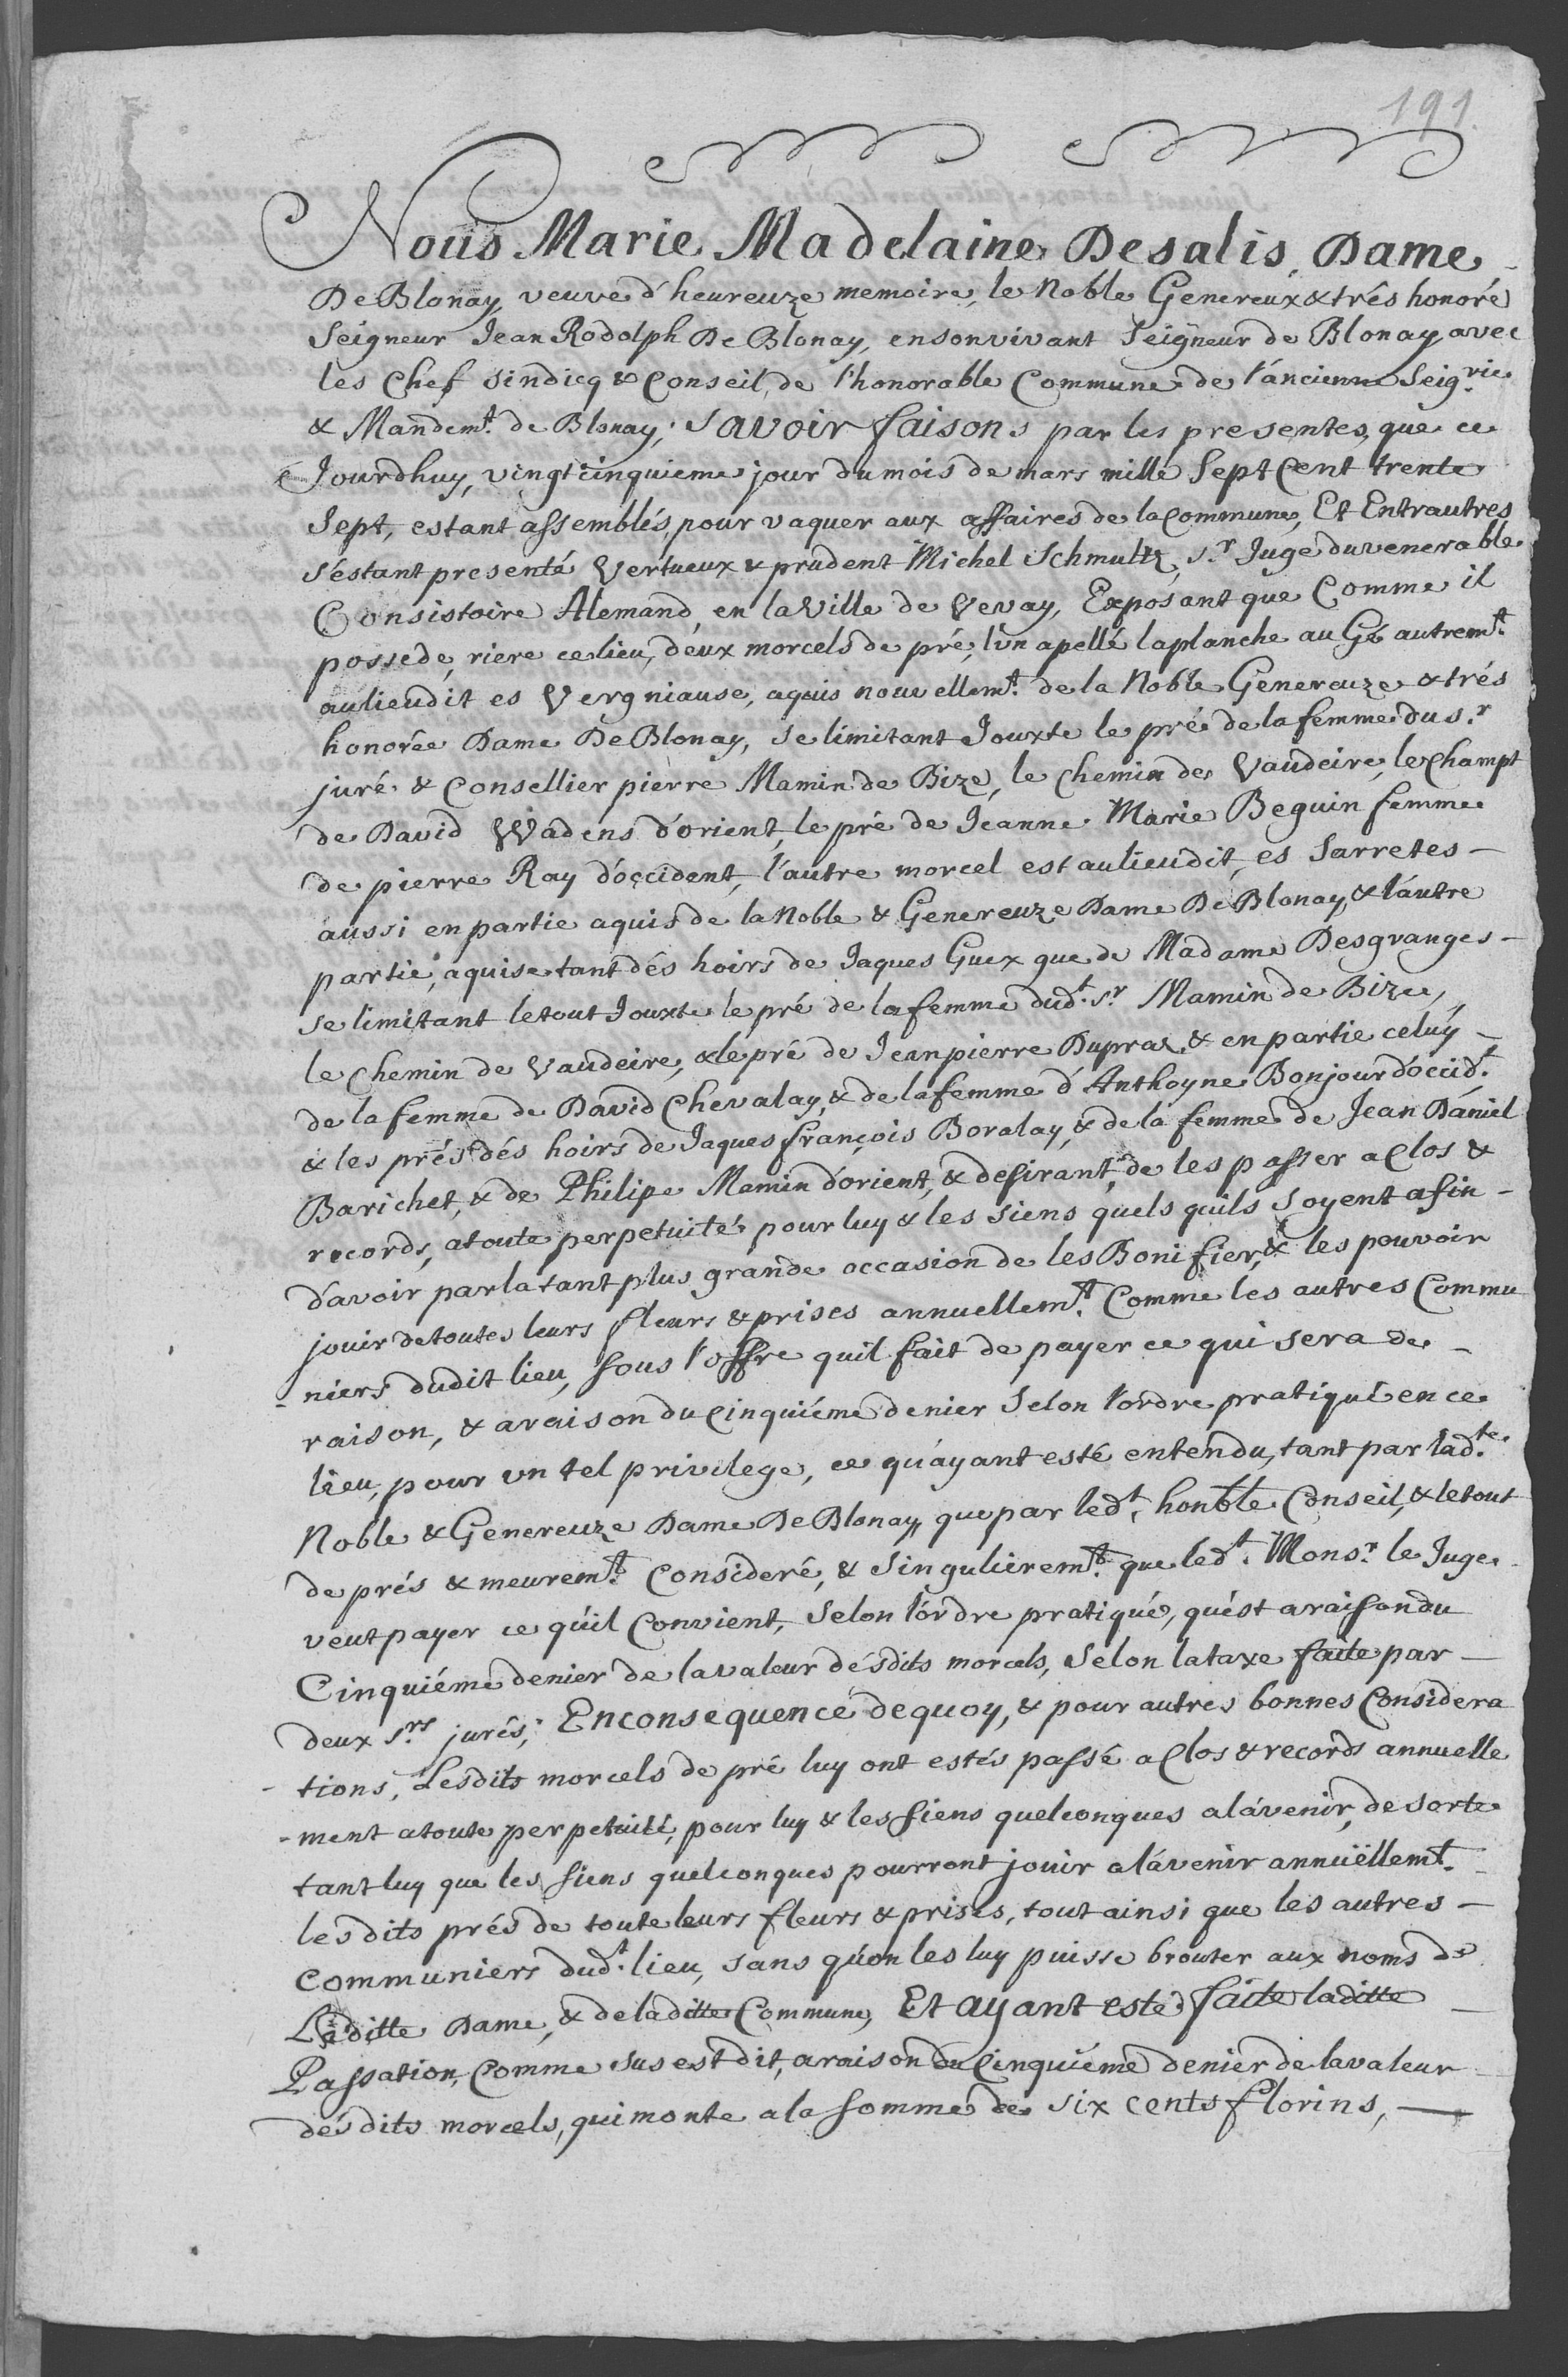 191.
Nous Marie Madelaine Desalis, Dame
De Blonay, veuve d'heureuze memoire, le Noble Genereux & trés honoré
Seigneur Jean Rodolph De Blonay, en son vivant Seigneur de Blonay avec
les Chef Sindicq & Conseil, de l'honorable Commune de l'ancienne Seig.rie
& Mandem.t de Blonay; Savoir faisons par les presentes, que ce
Jourdhuy, vingt cinquieme jour du mois de mars mille Sept Cent trente
Sept, estant assemblés, pour vaquer aux affaires de la Commune, Et Entrautres
s'éstant presenté Vertueux & prudent Michel Schmultz, S.r Juge du venerable
Consistoire Alemand, en la Ville de Vevay, Exposant que Comme il
possede, riere ce lieu, deux morcels de pré, l'un apellé la planche au Gé autrem.t
au lieu dit es Vergniause, aquis nouvellem.t de la Noble Genereuze & trés
honorée Dame De Blonay, se limitant Jouxte le pré de la femme du S.r
juré & Consellier pierre Mamin de Bize, le Chemin de Vaudeire, le Champt
de David Wadens d'orient, le pré de Jeanne Marie Beguin femme
de pierre Ray d'occident, l'autre morcel est au lieu dit, es Sarretes -
aussi en partie aquis de la Noble & Genereuze Dame De Blonay, & l'autre
partie, aquise tant dés hoirs de Jaques Guex que de Madame Desgranges -
se limitant le tout Jouxte le pré de la femme dud.t S.r Mamin de Bize,
le Chemin de Vaudeire, & le pré de Jean pierre Dupraz, & en partie celuy -
de la femme de David Chevalay, & de la femme d'Anthoyne Bonjour d'occid.t
& les prés dés hoirs de Jaques françois Boralay, & de la femme de Jean Daniel
Barichet, & de Philipe Mamin d'orient, & desirant, de les passer a Clos &
records, a toute perpetuité pour luy & les siens quels quils soyent afin -
d'avoir par la tant plus grande occasion de les Bonifier, & les pouvoir
jouir de toutes leurs fleurs & prises annuellem.t Comme les autres Commu
- niers dudit lieu, sous l'offre quil fait de payer ce qui sera de -
raison, & a raison du Cinquiéme denier Selon l'ordre pratiqué en ce
lieu, pour un tel privilege, ce qu'ayant esté entendu, tant par lad.te
Noble & Genereuze Dame De Blonay, que par led.t honble Conseil, & le tout
de prés & meurem.t Consideré, & Singulierem.t que led.t Mons.r le Juge
veut payer ce qu'il Convient, Selon l'ordre pratiqué, qu'est a raison du
Cinquiéme denier de la valeur désdits morcels, Selon la taxe faite par -
deux S.rs jurés; En consequence dequoy, & pour autres bonnes Considera
- tions, Lesdits morcels de pré luy ont estés passé a Clos & records annuelle
- ment a toute perpetuité, pour luy & les siens quelconques a l'avenir, de sorte
tant luy que les siens quelconques pourront jouir a l'avenir annuëllem.t
lesdits prés de toute leurs fleurs & prises, tout ainsi que les autres -
communiers dud.t lieu, sans qu'on les luy puisse brouter aux noms de
Laditte Dame, & de laditte Commune, Et ayant esté faite laditte -
Passation, Comme sus est dit, a raison du Cinquiéme denier de la valeur
désdits morcels, qui monte a la somme de six cents florins, —